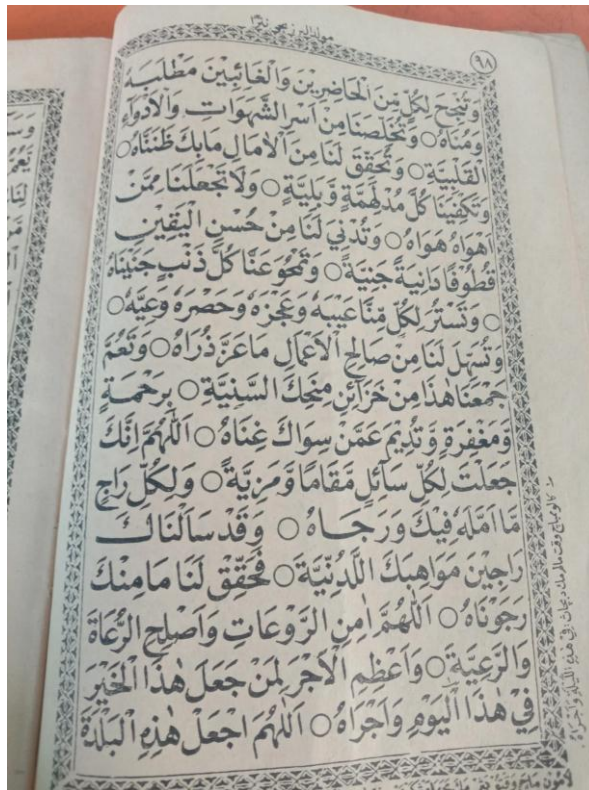 مولد البرزنجي نثرا
٩٨
وَتُنْجِحَ لِكُلٍّ مِّنَ الْحَاضِرِيْنَ وَالْغَائِبِيْنَ مَطْلَبَهُ
وَمُنَاهُ ○ وَتُخَلِّصَنَا مِنْ اَسْرِ الشَّهَوَاتِ وَالْاَدْوَاءِ
الْقَلْبِيَّةِ ○ وَتُحَقِّقَ لَنَا مِنَ الْاٰمَالِ مَابِكَ ظَنَنَّاهُ ○
وَتَكْفِيَنَا كُلَّ مُدْلَهِمَّةٍ وَّبَلِيَّةٍ ○ وَلَا تَجْعَلْنَا مِمَّنْ
اَهْوَاهُ هَوَاهُ ○ وَتُدْنِيَ لَنَا مِنْ حُسْنِ الْيَقِيْنِ
قُطُوْفًا دَانِيَةً جَنِيَّةً ○ وَتَمْحُوَ عَنَّا كُلَّ ذَنْبٍ جَنَيْنَاهُ
○ وَتَسْتُرَ لِكُلٍّ مِّنَّا عَيْبَهُ وَعَجْزَهُ وَحَصْرَهُ وَعِيَّهُ ○
وَتُسَهِّلَ لَنَا مِنْ صَالِحِ الْاَعْمَالِ مَاعَزَّ ذُرَاهُ ○ وَتَعُمَّ
جَمْعَنَا هٰذَا مِنْ خَزَآئِنِ مِنَحِكَ السَّنِيَّةِ ○ بِرَحْمَةٍ
وَّمَغْفِرَةٍ وَّتُدِيْمَ عَمَّنْ سِوَاكَ غِنَاهُ ○ اَللّٰهُمَّ اِنَّكَ
جَعَلْتَ لِكُلِّ سَآئِلٍ مَّقَامًا وَّمَزِيَّةً ○ وَلِكُلِّ رَاجٍ
مَّا اَمَّلَهُ فِيْكَ وَرَجَاهُ ○ وَقَدْ سَاَلْنَاكَ
رَاجِيْنَ مَوَاهِبَكَ اللَّدُنِّيَّةَ ○ فَحَقِّقْ لَنَا مَا مِنْكَ
رَجَوْنَاهُ ○ اَللّٰهُمَّ اٰمِنِ الرَّوْعَاتِ وَاَصْلِحِ الرُّعَاةَ
وَالرَّعِيَّةَ ○ وَاَعْظِمِ الْاَجْرَ لِمَنْ جَعَلَ هٰذَا الْخَيْرَ
فِيْ هٰذَا الْيَوْمِ وَاَجْرَاهُ ○ اَللّٰهُمَّ اجْعَلْ هٰذِهِ الْبَلْدَةَ